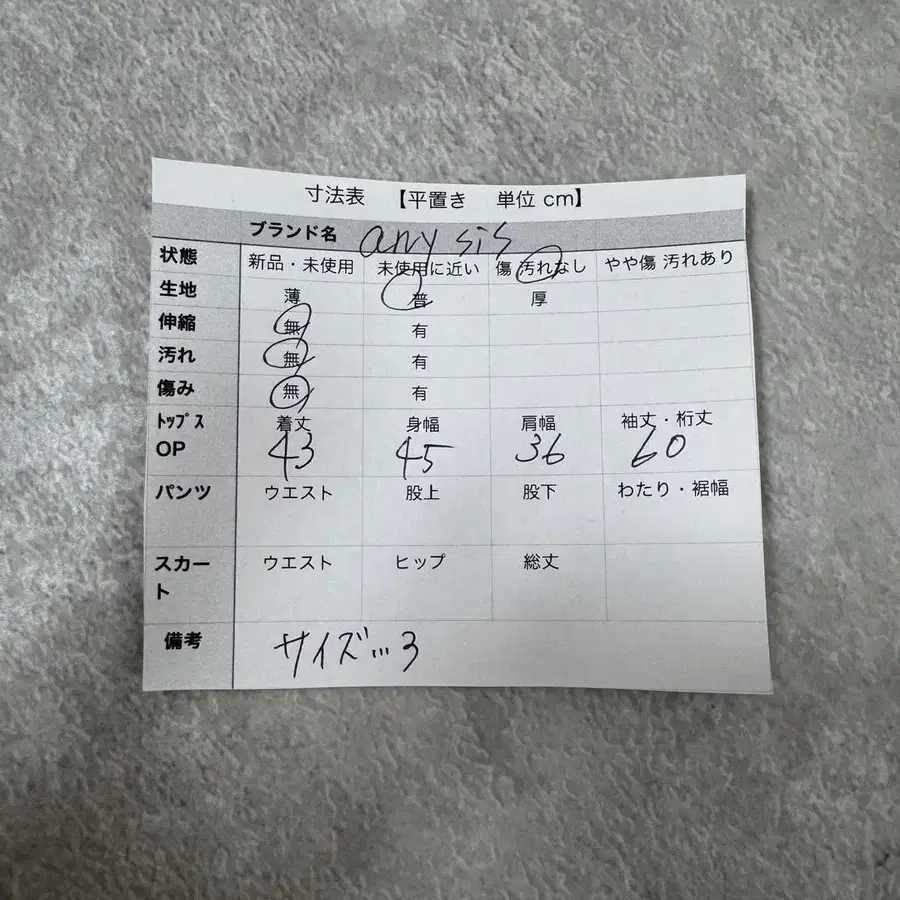 寸法表 【平置き 単位 cm】
ブランド名 any sis
状態 新品・未使用 未使用に近い 傷 汚れなし やや傷 汚れあり
生地 薄 普 厚
伸縮 無 有
汚れ 無 有
傷み 無 有
トップス OP 着丈 身幅 肩幅 袖丈・裄丈
43 45 36 60
パンツ ウエスト 股上 股下 わたり・裾幅
スカート ウエスト ヒップ 総丈
備考 サイズ…3